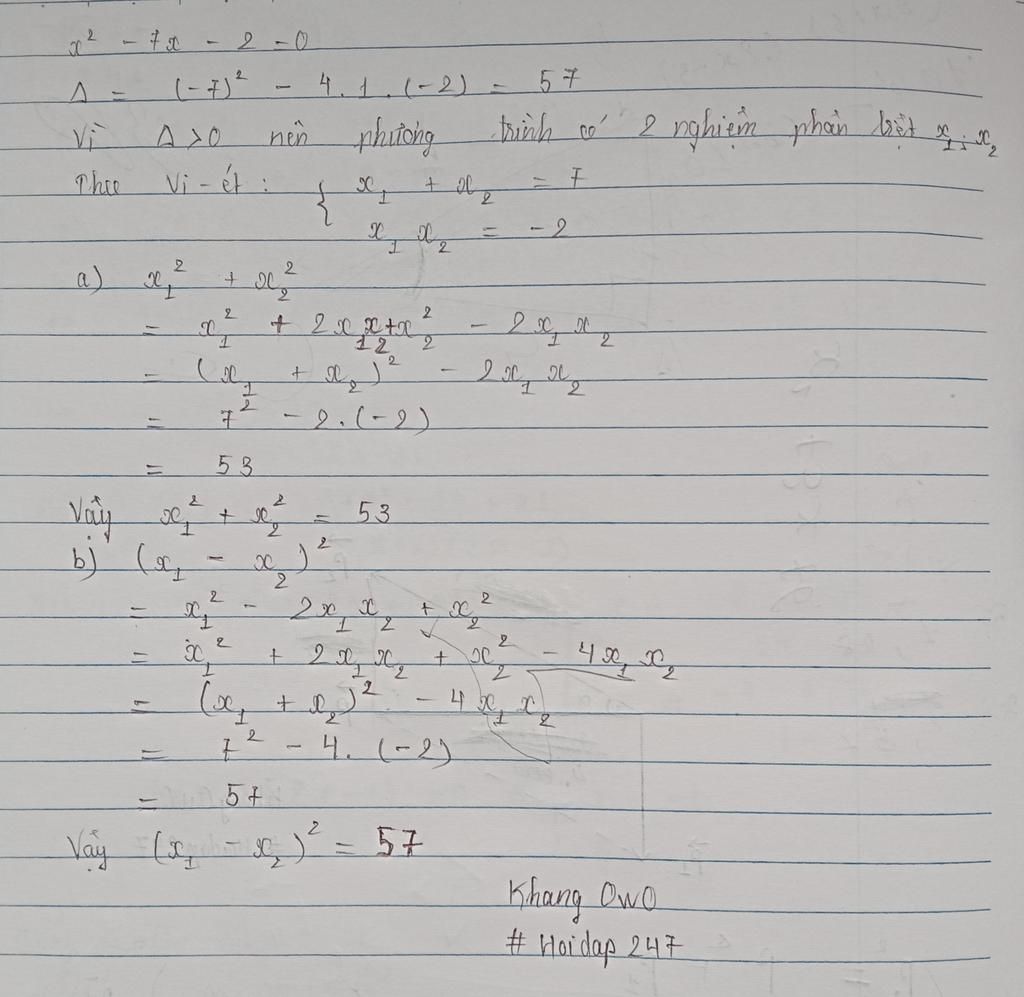 x² - 7x - 2 = 0
Δ = (-7)² - 4.1.(-2) = 57
Vì Δ>0 nên phương trình có 2 nghiệm phân biệt x₁; x₂
Theo Vi-ét : { x₁ + x₂ = 7
x₁ x₂ = -2
a) x₁² + x₂²
= x₁² + 2x₁x₂+x₂² - 2x₁x₂
= (x₁ + x₂)² - 2x₁x₂
= 7² - 2.(-2)
= 53
Vậy x₁² + x₂² = 53
b) (x₁ - x₂)²
= x₁² - 2x₁x₂ + x₂²
= x₁² + 2x₁x₂ + x₂² - 4x₁x₂
= (x₁ + x₂)² - 4x₁x₂
= 7² - 4.(-2)
= 57
Vậy (x₁ - x₂)² = 57
Khang OwO
# Hoidap 247